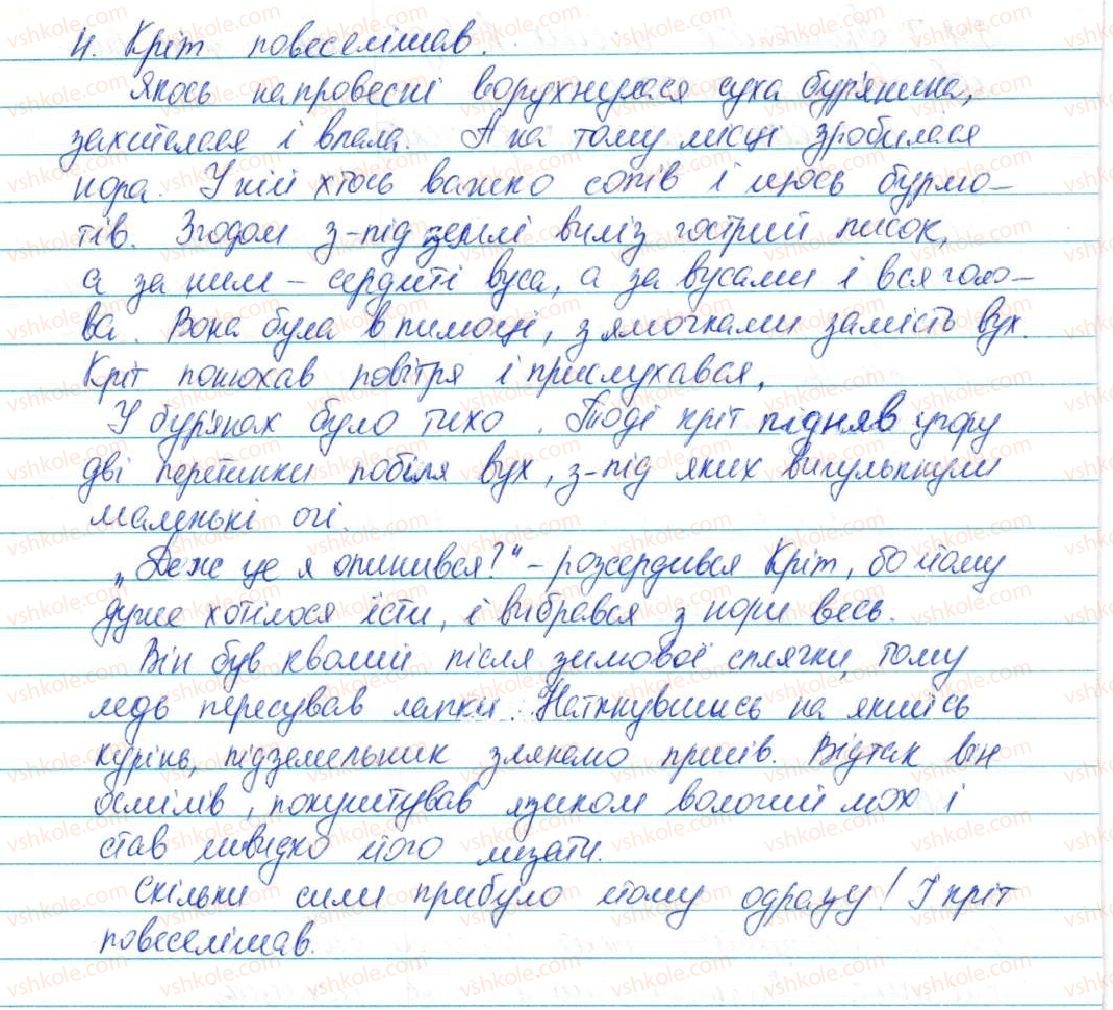 4. Кріт повеселішав.
Якось напровесні ворухнулася суха бур'янина,
захиталася і впала. А на тому місці зробилася
нора. У ній хтось важко сопів і щось бурмо-
тів. Згодом з-під землі виліз гострий писок,
а за ним – сердиті вуса, а за вусами і вся голо-
ва. Вона була в пилюці, з ямочками замість вух.
Кріт понюхав повітря і прислухався.
У бур'янах було тихо. Тоді кріт підняв угору
дві перетинки побіля вух, з-під яких вигулькнули
маленькі очі.
„Де ж це я опинився?" – розсердився Кріт, бо йому
дуже хотілося їсти, і вибрався з нори весь.
Він був кволий після зимової сплячки, тому
ледь пересував лапки. Наткнувшись на якийсь
курінь, підземельник злякано присів. Відтак він
осмілів, покуштував язиком вологий мох і
став швидко його лизати.
Скільки сили прибуло йому одразу! І кріт
повеселішав.